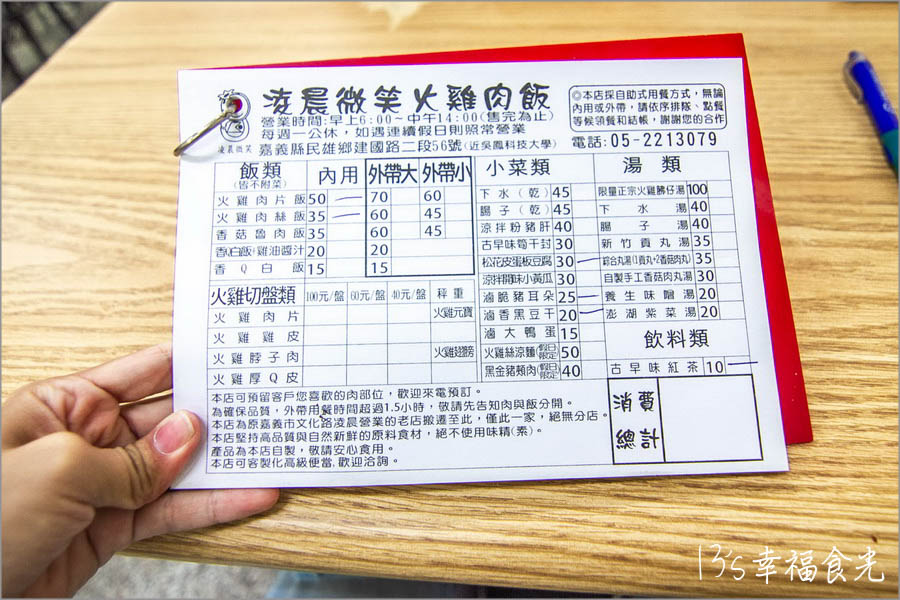 凌晨微笑火雞肉飯
營業時間:早上6:00~中午14:00(售完為止)
每週一公休,如遇連續假日則照常營業
嘉義縣民雄鄉建國路二段56號(近吳鳳科技大學)
凌晨微笑
◎本店採自助式用餐方式,無論
內用或外帶,請依序排隊、點餐
等候領餐和結帳,謝謝您的合作
電話:05-2213079
飯類 內用 外帶大 外帶小
(皆不附菜)
火雞肉片飯 50 70 60
火雞肉絲飯 35 60 45
香菇魯肉飯 35 60 45
香Q(白飯)雞油醬汁 20 20
香Q白飯 15 15
火雞切盤類 100元/盤 60元/盤 40元/盤 秤重
火雞肉片 火雞元寶
火雞雞皮
火雞脖子肉 火雞翅膀
火雞厚Q皮
小菜類
下水(乾) 45
腸子(乾) 45
涼拌粉豬肝 40
古早味筍干封 30
松花皮蛋板豆腐 30
涼拌開味小黃瓜 30
滷脆豬耳朵 25
滷香黑豆干 20
滷大鴨蛋 15
火雞絲涼麵(假日限定) 50
黑金豬頰肉(假日限定) 40
湯類
限量正宗火雞佛仔湯 100
下水湯 40
腸子湯 40
新竹貢丸湯 35
綜合丸湯(1貢丸+2香菇肉丸) 35
自製手工香菇肉丸湯 30
養生味噌湯 20
澎湖紫菜湯 20
飲料類
古早味紅茶 10
消費
總計
本店可預留客戶您喜歡的肉部位,歡迎來電預訂。
為確保品質,外帶用餐時間超過1.5小時,敬請先告知肉與飯分開。
本店為原嘉義市文化路凌晨營業的老店搬遷至此,僅此一家,絕無分店。
本店堅持高品質與自然新鮮的原料食材,絕不使用味精(素)。
產品為本店自製,敬請安心食用。
本店可客製化高級便當,歡迎洽詢。
13's幸福食光